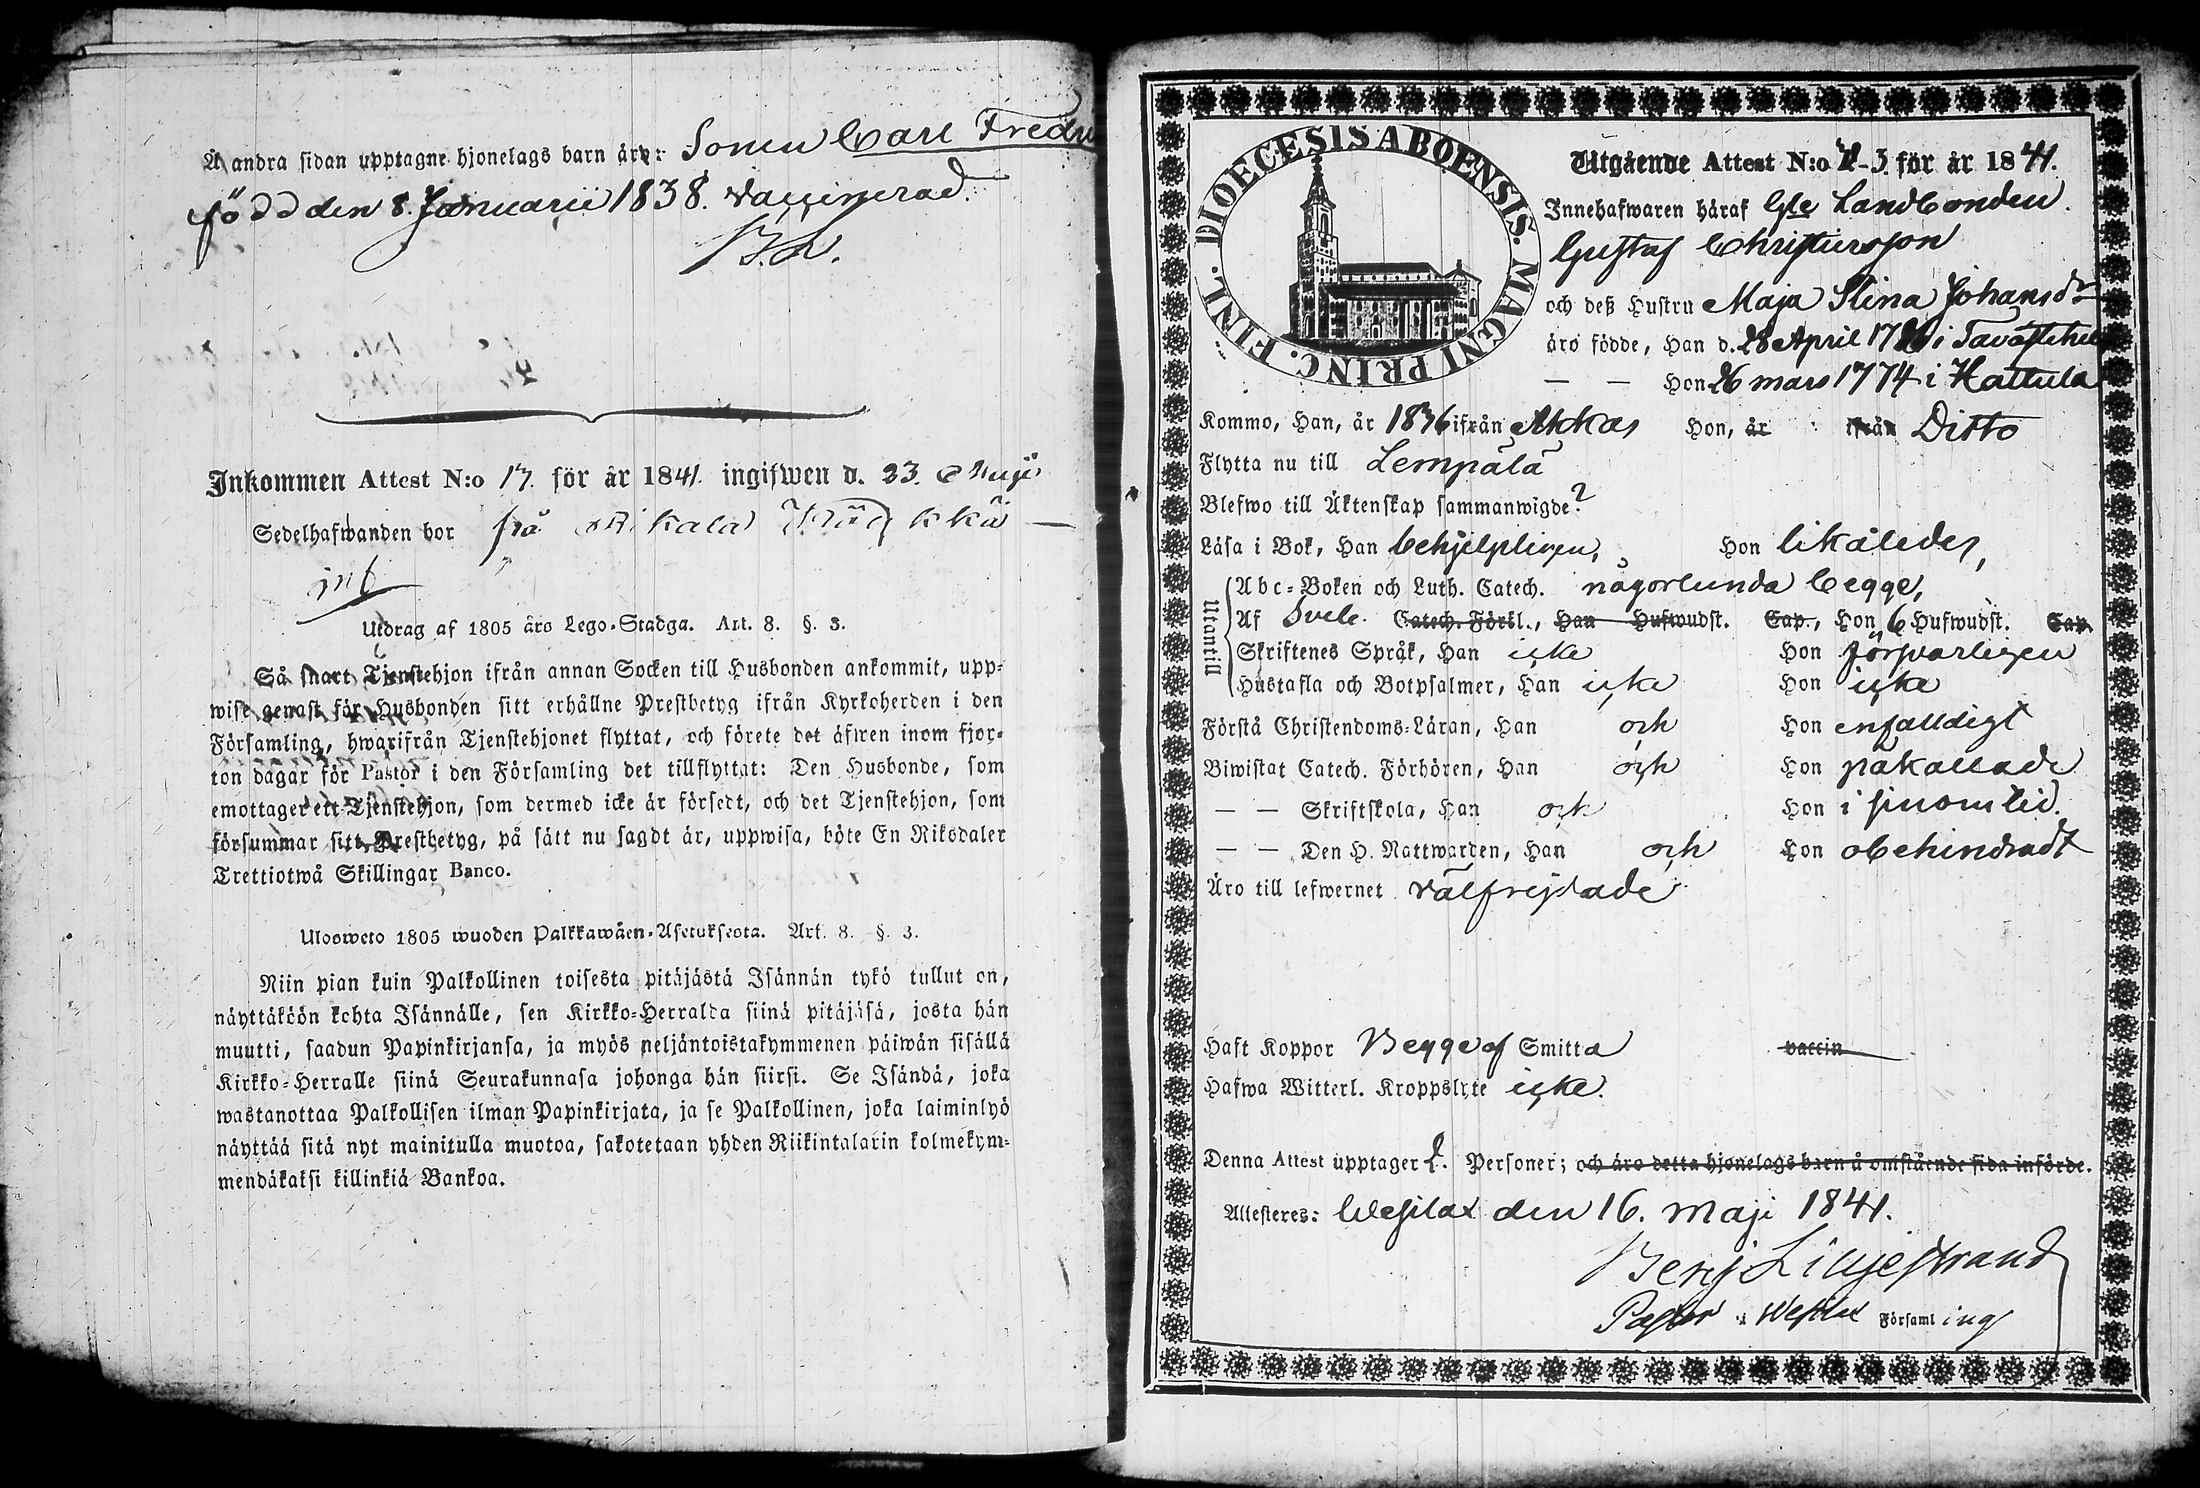 Å andra sidan upptagne hjonelags barn äro: Sonen Carl Fredr
född den 8. Januarii 1838. vaccinerad.
B.L.
Inkommen Attest N:o 17. för år 1841. ingifwen d. 23. Maji
Sedelhafwanden bor på
Utdrag af 1805 års Lego-Stadga. Art. 8. §. 3.
Så snart Tjenstehjon ifrån annan Socken till Husbonden ankommit, upp-
wise genast för Husbonden sitt erhållne Prestbetyg ifrån Kyrkoherden i den
Församling, hwarifrån Tjenstehjonet flyttat, och förete det äfwen inom fjor-
ton dagar för Pastor i den Församling det tillflyttat: Den Husbonde, som
emottager ett Tjenstehjon, som dermed icke är försedt, och det Tjenstehjon, som
försummar sitt Prestbetyg, på sätt nu sagdt är, uppwisa, böte En Riksdaler
Trettiotwå Skillingar Banco.
Ulosweto 1805 wuoden Palkkawäen-Asetuksesta. Art. 8. §. 3.
Niin pian kuin Palkollinen toisesta pitäjästä Isännän tykö tullut on,
näyttäköön kohta Isännälle, sen Kirkko-Herralda siinä pitäjäsä, josta hän
muutti, saadun Papinkirjansa, ja myös neljäntoistakymmenen päiwän sisällä
Kirkko-Herralle siinä Seurakunnasa johonga hän siirsi. Se Isändä, joka
wastanottaa Palkollisen ilman Papinkirjata, ja se Palkollinen, joka laiminlyö
näyttää sitä nyt mainitulla muotoa, sakotetaan yhden Riikintalarin kolmekym-
mendäkaksi killinkiä Bankoa.
DIOECESIS ABOENSIS. MAGNI PRINC. FINL.
Utgående Attest N:o 2-3 för år 1841.
Innehafwaren häraf Gle Landbonden
Gustaf Christiersson
och deß Hustru Maja Stina Johansdr
äro födde, Han d. 28 April 17 i Tavastehus
— — Hon 26 mars 1774 i Hattula
Kommo, Han, år 1836 ifrån Akkas Hon, år ifrån Ditto
Flytta nu till Lempälä
Blefwo till Äktenskap sammanwigde?
Läsa i Bok, Han behjelpligen, Hon likaledes,
Utantill
Abc-Boken och Luth. Catech. någorlunda begge,
Af Sveb. Catech. Förkl., Han Hufwudst. Cap., Hon 6 Hufwudst. Cap.
Skriftenes Språk, Han icke Hon försvarligen
Hustafla och Botpsalmer, Han icke Hon icke
Förstå Christendoms-Läran, Han och Hon enfalldigt
Biwistat Catech. Förhören, Han och Hon påkallade
— — Skriftskola, Han och Hon i sinom tid.
— — Den H. Nattwarden, Han och Hon obehindradt
Äro till lefwernet välfrejdade
Haft Koppor Begge af Smitta vaccin
Hafwa Witterl. Kroppslyte icke.
Denna Attest upptager 2. Personer; och äro detta hjonelags barn å omstående sida införde.
Attesteres: Wesilax den 16. Maji 1841.
Benj Liljestrand
Pastor i Wesilax Församling